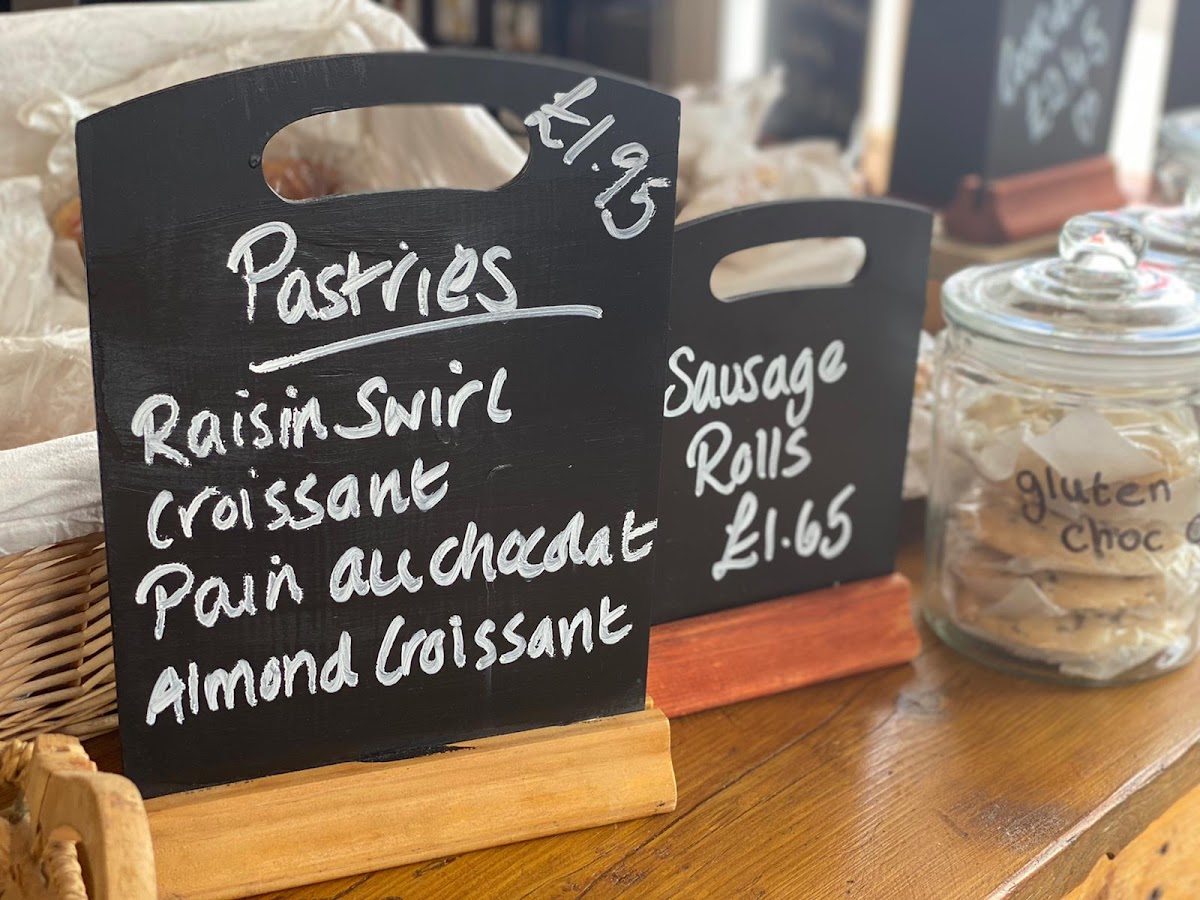 £1.95
Pastries
Raisin Swirl
Croissant
Pain au chocolat
Almond Croissant
Sausage
Rolls
£1.65
gluten
choc